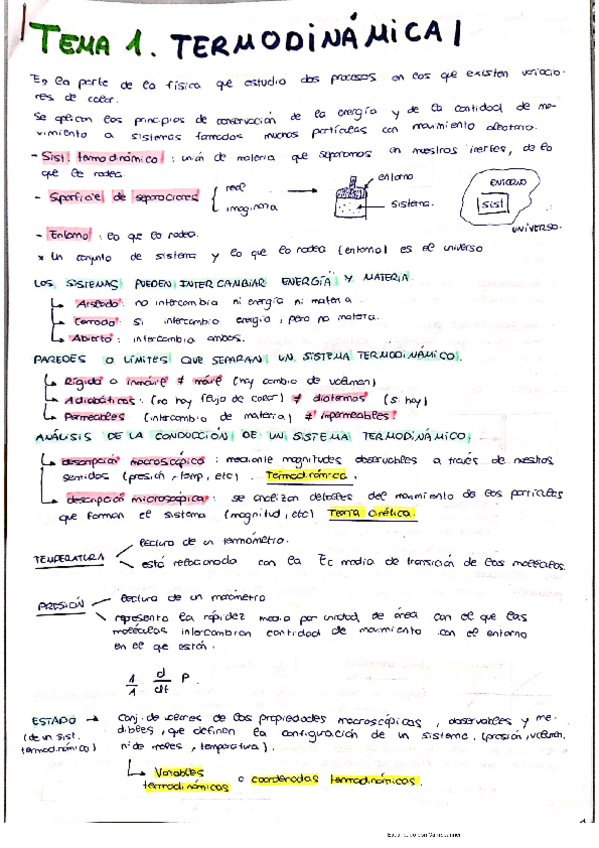 TEMA 1. TERMODINÁMICA I
Es la parte de la física que estudia los procesos en los que existen variacio-
nes de calor.
Se aplican los principios de conservación de la energía y de la cantidad de mo-
vimiento a sistemas formados muchas partículas con movimiento aleatorio.
- Sist. termodinámico : unión de materia que separamos en nuestros de lo
que le rodea.
- Superficie de separaciones { real
imaginaria
entorno
sistema.
ENTORNO
sist
UNIVERSO.
- Entorno : lo que lo rodea.
* Un conjunto de sistema y lo que lo rodea (entorno) es el universo
LOS SISTEMAS PUEDEN INTERCAMBIAR ENERGÍA Y MATERIA.
Aislado : no intercambia ni energía ni materia.
Cerrado : si intercambia energía, pero no materia.
Abierto : intercambia ambos.
PAREDES O LÍMITES QUE SEPARAN UN SISTEMA TERMODINÁMICO.
Rígida o inmóvil ≠ móvil (hay cambio de volumen)
Adiabáticas : (no hay flujo de calor) ≠ diatermas (si hay)
Permeables (intercambio de materia) ≠ impermeables.
ANÁLISIS DE LA CONDUCCIÓN DE UN SISTEMA TERMODINÁMICO:
descripción macroscópica : mediante magnitudes observables a través de nuestros
sentidos (presión, temp, etc). Termodinámica.
descripción microscópica : se analizan detalles del movimiento de las partículas
que forman el sistema (magnitud, etc) Teoría cinética.
TEMPERATURA
lectura de un termómetro.
está relacionada con la Ec media de transición de las moléculas.
PRESIÓN
lectura de un manómetro
representa la rapidez media por unidad de área con el que las
moléculas intercambian cantidad de movimiento con el entorno
en el que están.
1/A d/dt P.
ESTADO → Conj. de valores de las propiedades macroscópicas, observables y me-
(de un sist. dibles, que definen la configuración de un sistema. (presión, volumen,
termodinámico) nº de moles, temperatura).
Variables o coordenadas termodinámicas.
termodinámicas